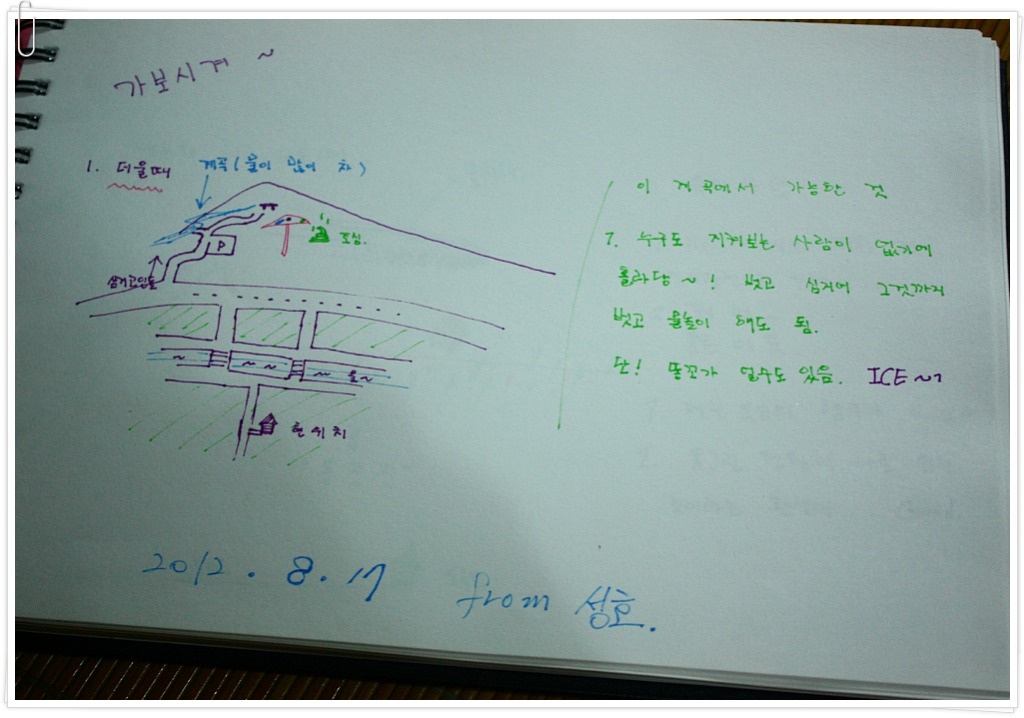 가보시게 ~
1. 더울때 계곡(물이 많이 차)
P
조심.
삼거고인돌
~ ~ ~ ~ 물~
현위치
이 계곡에서 가능한 것
7. 누구도 지켜보는 사람이 없기에
홀라당~! 벗고 심지어 그것까지
벗고 물놀이 해도 됨.
단! 똥꼬가 얼수도 있음. ICE~
2012. 8. 17 from 성호.